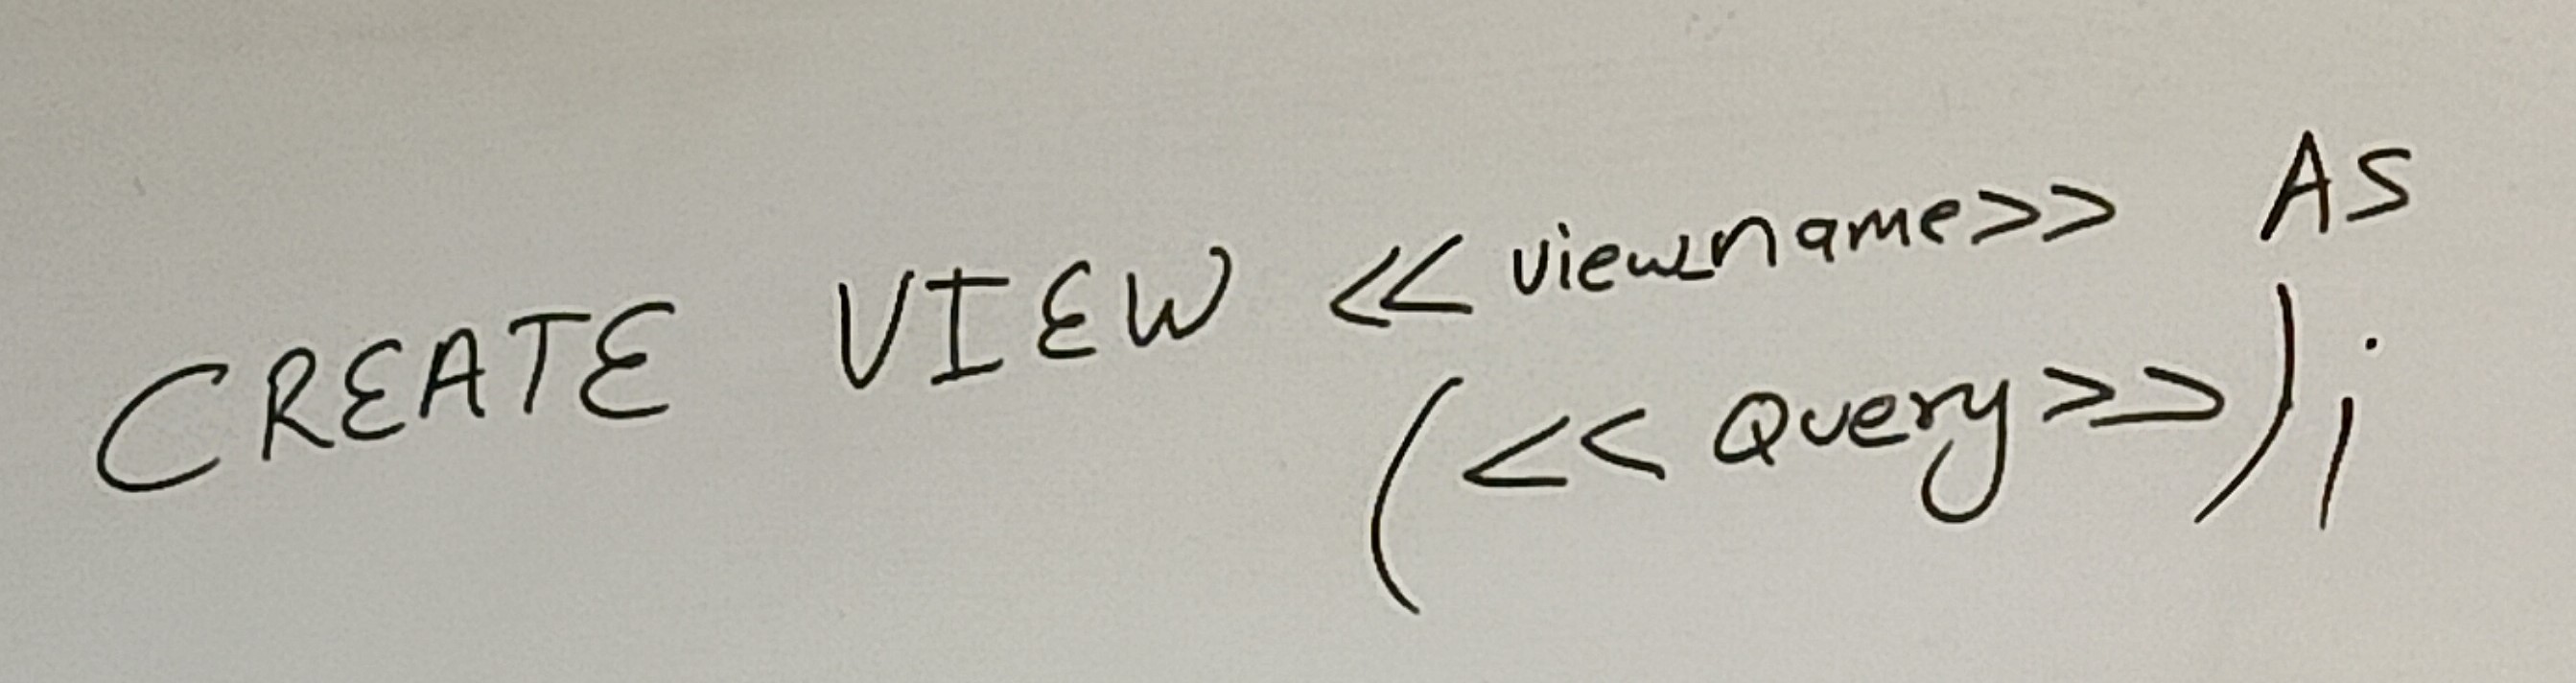 CREATE VIEW << view_name >> AS
(<< Query >>);